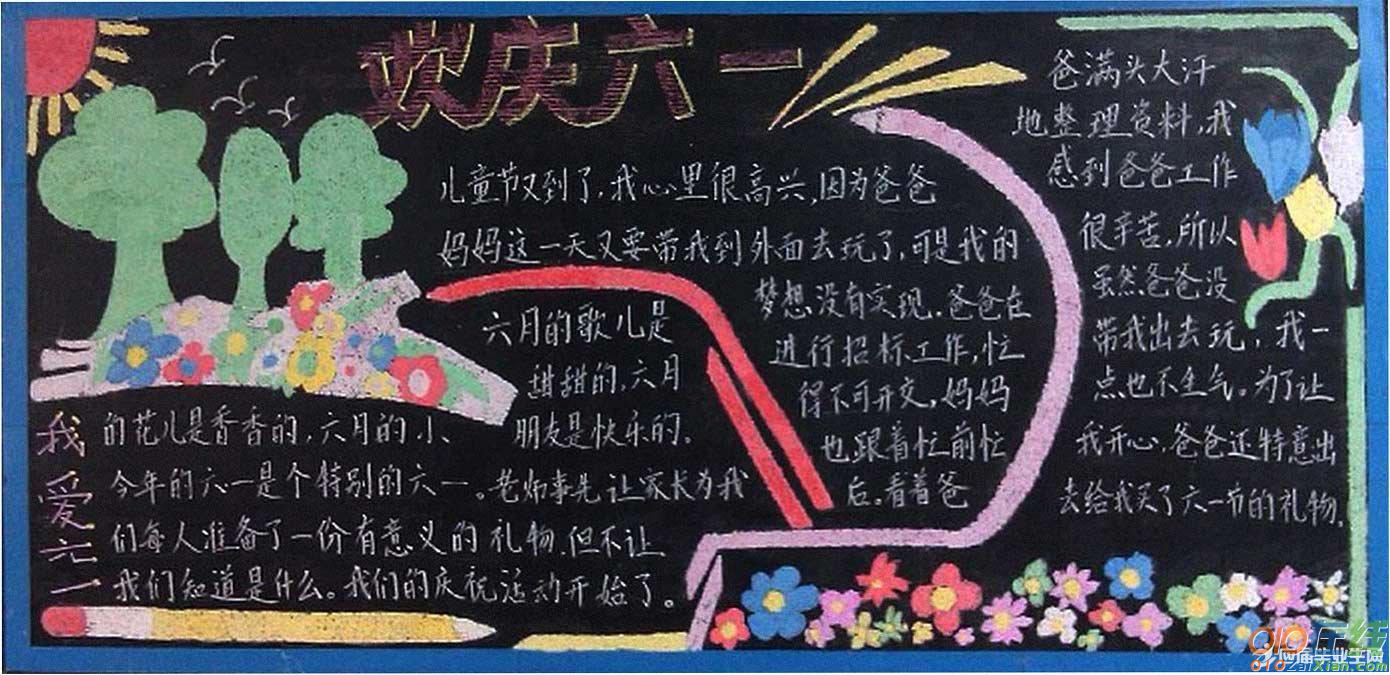 欢庆六一
儿童节又到了，我心里很高兴，因为爸爸
妈妈这一天又要带我到外面去玩了，可是我的
梦想没有实现．爸爸在
进行招标工作，忙
得不可开交，妈妈
也跟着忙前忙
后。看着爸
爸满头大汗
地整理资料，我
感到爸爸工作
很辛苦，所以
虽然爸爸没
带我出去玩，我一
点也不生气。为了让
我开心．爸爸还特意出
去给我买了六一节的礼物．
我爱六一
六月的歌儿是
甜甜的，六月
的花儿是香香的，六月的小
朋友是快乐的。
今年的六一是个特别的六一。老师事先让家长为我
们每人准备了一份有意义的礼物．但不让
我们知道是什么。我们的庆祝活动开始了。
在线
应届毕业生网
oiozaixian.com